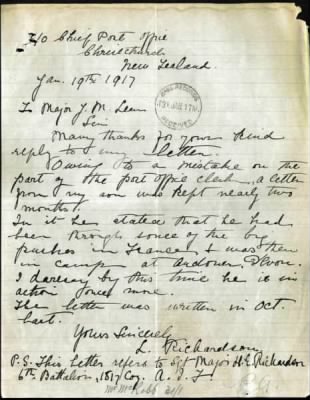 C/O Chief Post Office
Christchurch
New Zealand.
Jan. 19th 1917
To Major J. M. Lean
Sir
Many thanks for your kind
reply to my letter.
Owing to a mistake on the
part of the post office clerk, a letter
from my son was kept nearly two
months!
In it he stated that he had
been through some of the big
pushes in France, & was then
in camp at Andover, Devon.
I daresay by this time he is in
action once more.
The letter was written in Oct.
last.
Yours Sincerely
L. Richardson
P.S. This letter refers to Sgt Major H.E. Richardson
6th Battalion, Coy. A.I.F.
RECEIVED